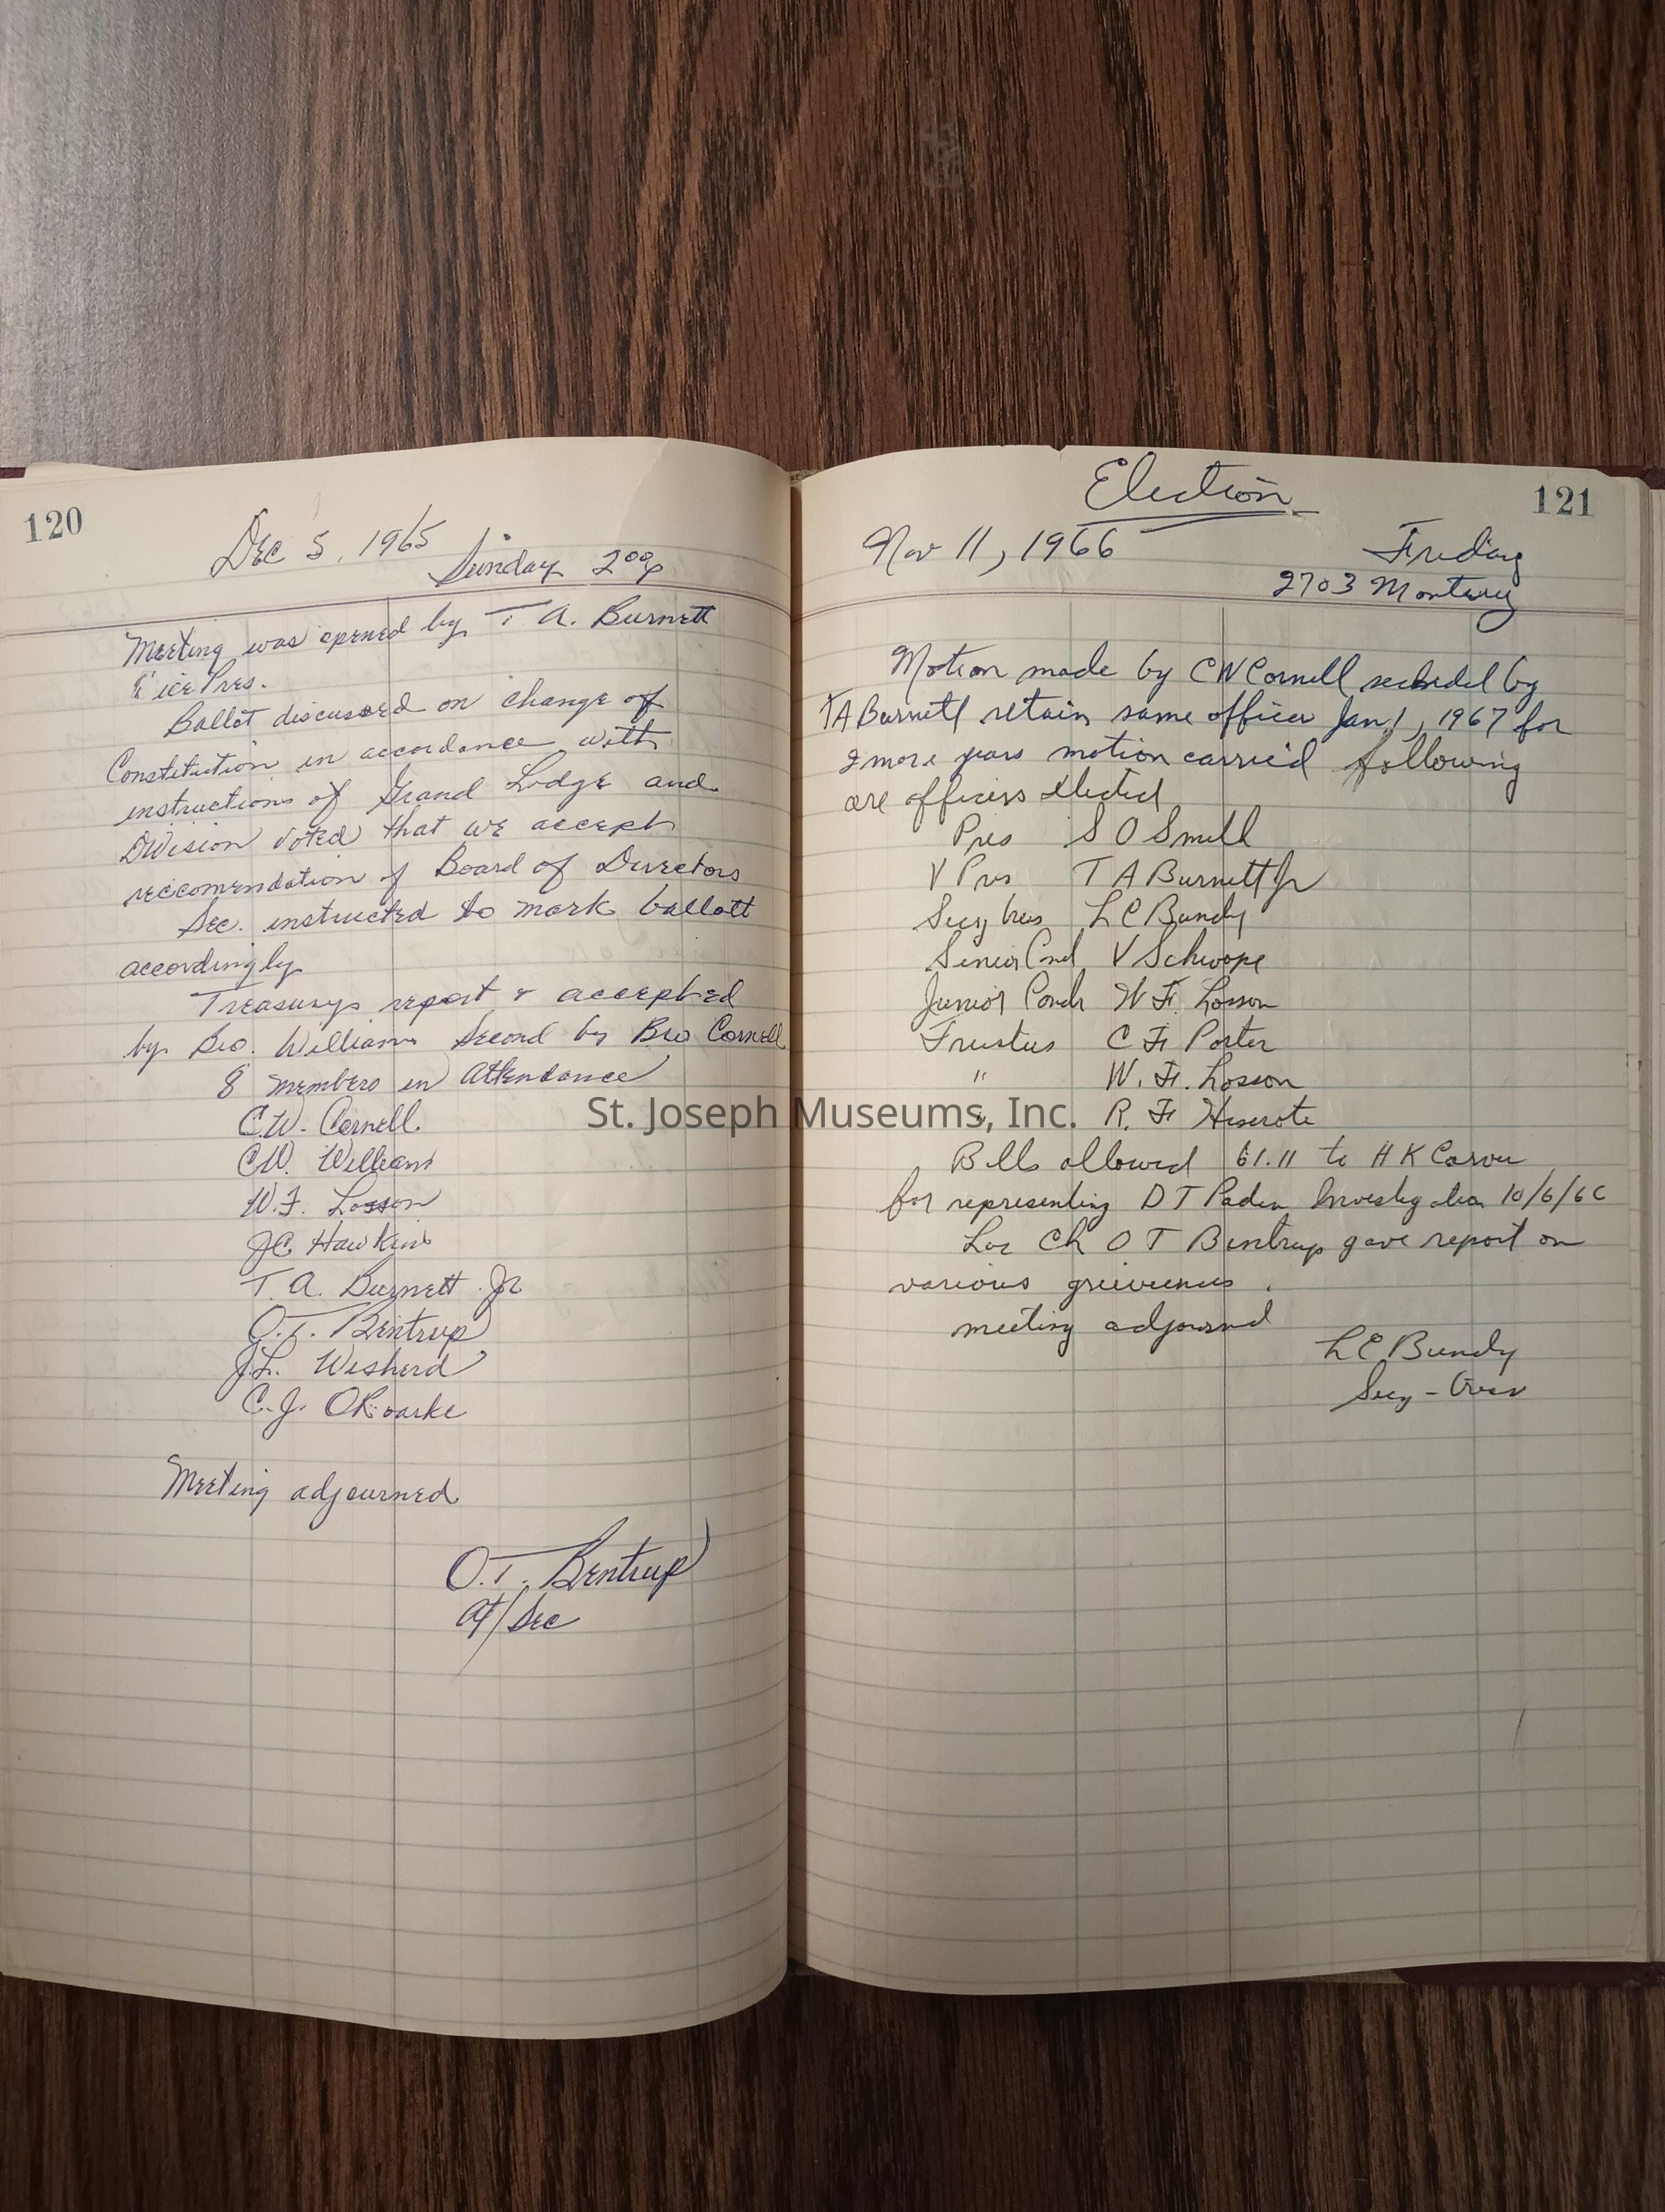 120
Dec 5, 1965
Sunday 2 00 p
Meeting was opened by T. A. Burnett
Vice Pres.
Ballot discussed on change of
Constitution in accordance with
instructions of Grand Lodge and
Division voted that we accept
reccomendation of Board of Directors
Sec. instructed to mark ballott
accordingly
Treasurys report & accepted
by Bro. Williams Second by Bro Cornell
8 members in Attendance
C.W. Cornell
C.W. Williams
W.F. Losson
J.C. Hawkins
T. A. Burnett Jr
O.T. Bentrup
J.L. Wisherd
C.J. ORoarke
Meeting adjourned
O.T. Bentrup
/Sec
Election
121
Nov 11, 1966
Friday
2703 Monterey
Motion made by C W Cornell seconded by
TA Burnett retain same officer Jan 1, 1967 for
2 more years motion carried following
are officers elected
Pres S O Smell
V Pres T A Burnett Jr
Secy tres L C Bundy
Senior Cond V Schwope
Junior Condr W F. Losson
Trustees C F Porter
" W. F. Losson
" R. F Hiserote
Bills allowed 61.11 to H K Carver
for representing D T Paden Investigation 10/6/66
Loc Ch O T Bentrup gave report on
various grievences.
meeting adjourned
L C Bundy
Secy - Tres
St. Joseph Museums, Inc.